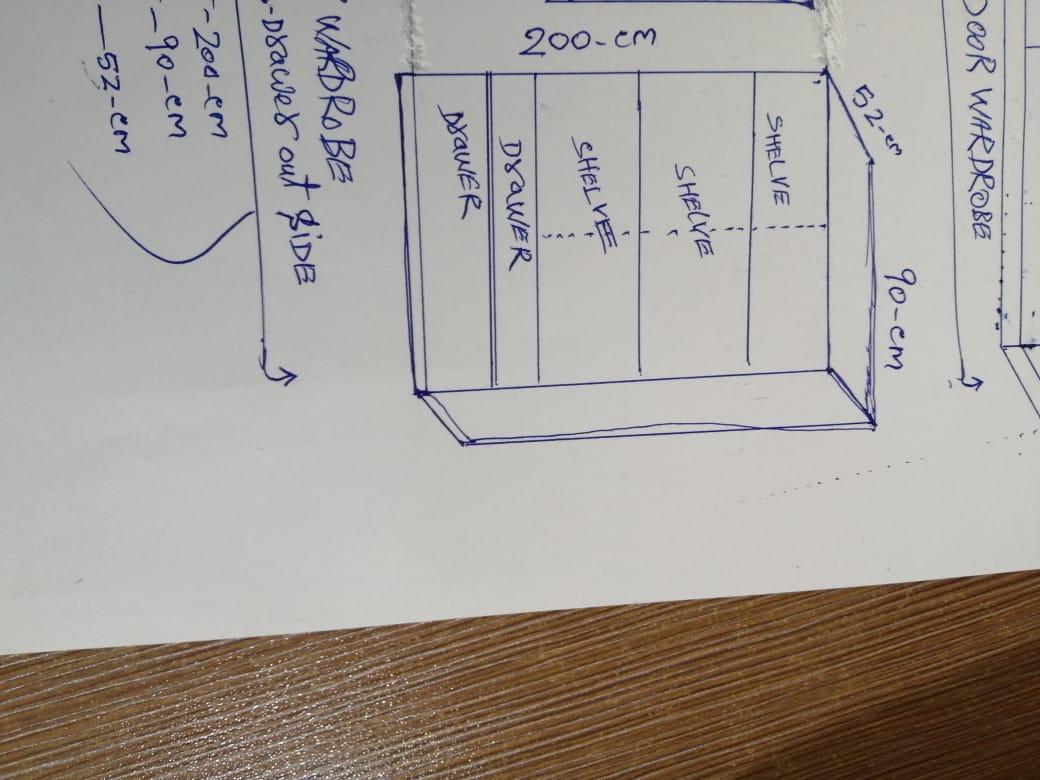 DOOR WARDROBE
52-cm
90-cm
SHELVE
SHELVE
200-cm
SHELVEE
DrawER
DrawER
WARDROBE
-Drawer out SIDE
-200-cm
-90-cm
-52-cm